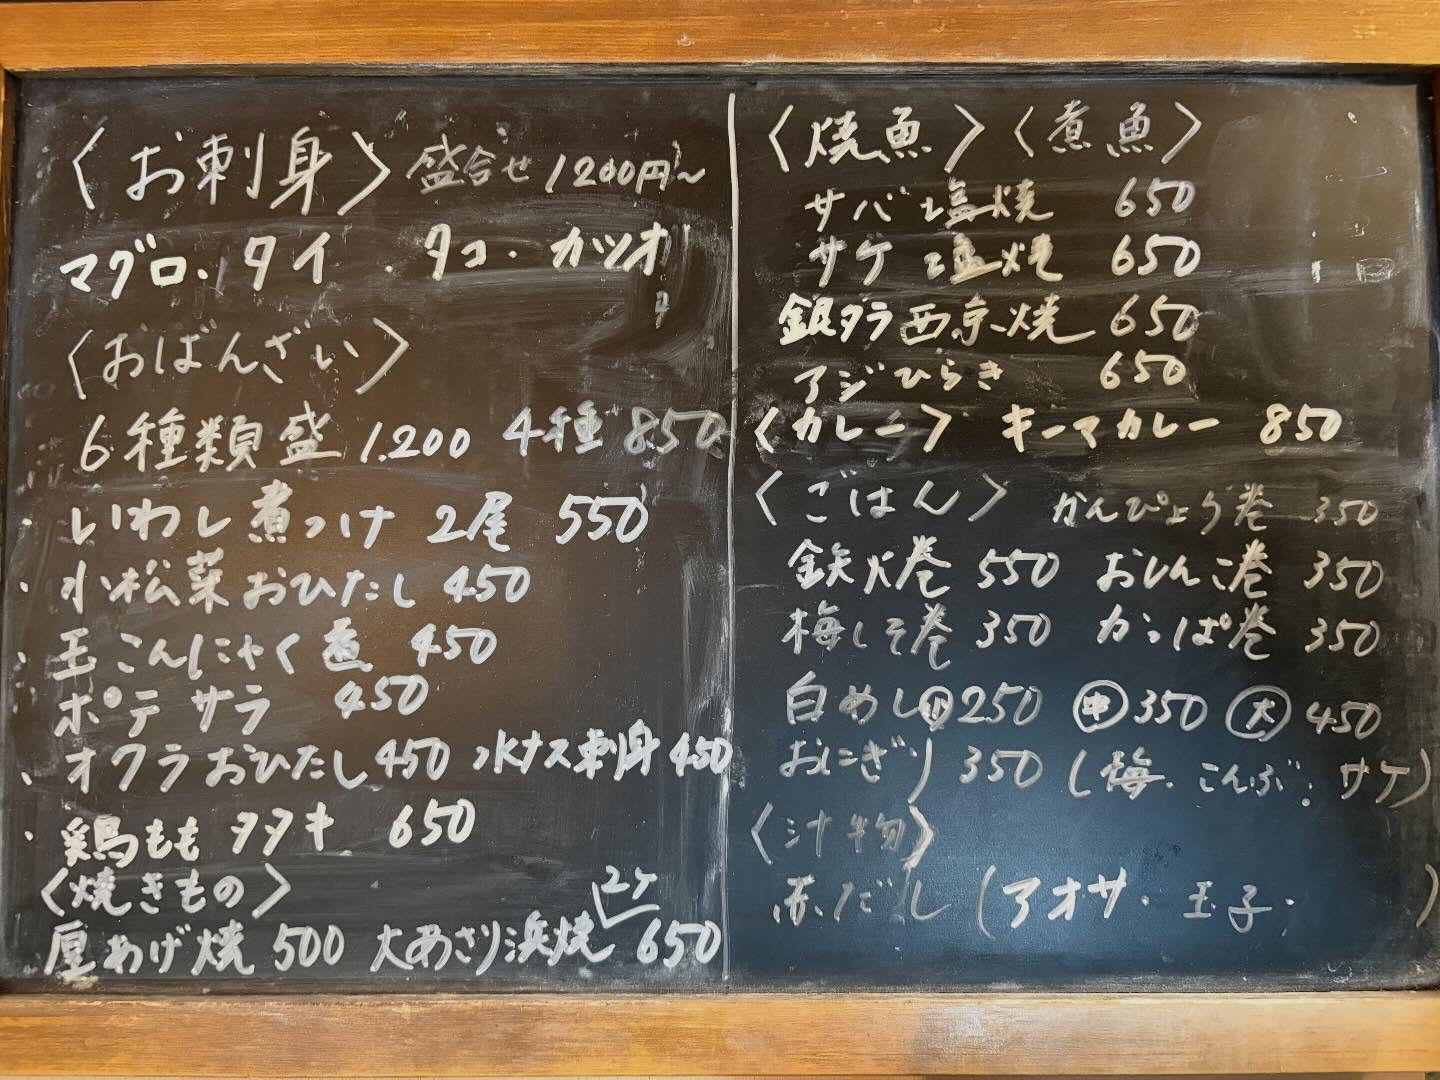 〈お刺身〉 盛合せ 1200円〜
マグロ・タイ ・タコ・カツオ
〈おばんざい〉
6種類盛 1.200 4種 850
・いわし煮つけ 2尾 550
・小松菜おひたし 450
・玉こんにゃく煮 450
ポテサラ 450
・オクラおひたし 450 水ナス刺身 450
・鶏ももタタキ 650
〈焼きもの〉
厚あげ焼 500 大あさり浜焼 2ケ 650
〈焼魚〉〈煮魚〉
サバ塩焼 650
サケ塩焼 650
銀ダラ西京焼 650
アジひらき 650
〈カレー〉 キーマカレー 850
〈ごはん〉 かんぴょう巻 350
鉄火巻 550 おしんこ巻 350
梅しそ巻 350 かっぱ巻 350
白めし 小 250 中 350 大 450
おにぎり 350 (梅・こんぶ・サケ)
〈汁物〉
赤だし (アオサ・玉子・ )